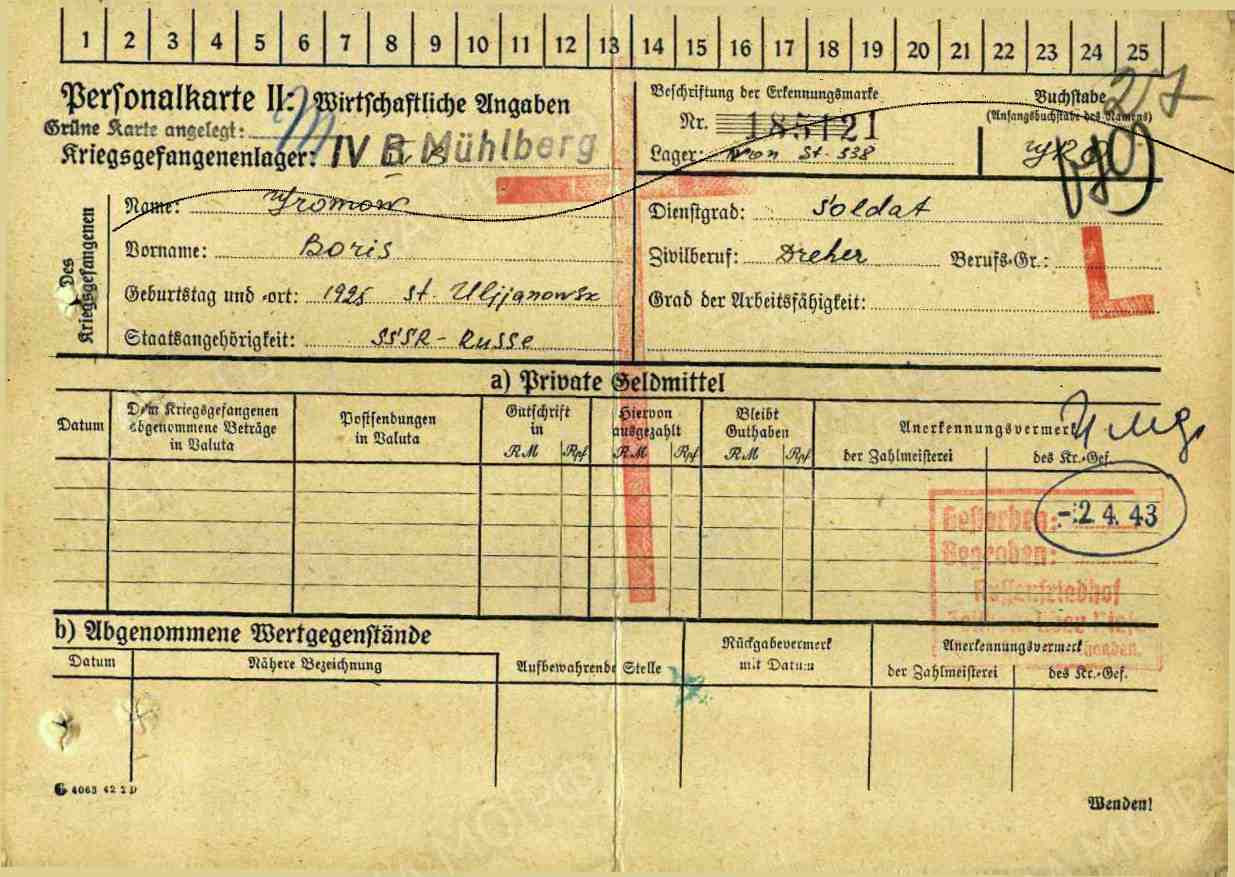 1 2 3 4 5 6 7 8 9 10 11 12 13 14 15 16 17 18 19 20 21 22 23 24 25
Personalkarte II: Wirtschaftliche Angaben
Grüne Karte angelegt:
Kriegsgefangenenlager: IV B Mühlberg
Beschriftung der Erkennungsmarke
Nr. 185121
Lager: St. 338
Buchstabe
(Anfangsbuchstabe des Namens)
27
Des Kriegsgefangenen
Name: Gromow
Vorname: Boris
Geburtstag und -ort: 1925 St. Uljjanowsk
Staatsangehörigkeit: SSSR - Russe
Dienstgrad: Soldat
Zivilberuf: Dreher Berufs-Gr.:
Grad der Arbeitsfähigkeit:
L
a) Private Geldmittel
Datum
Dem Kriegsgefangenen
abgenommene Beträge
in Valuta
Postsendungen
in Valuta
Gutschrift
in
RM Rpf
Hiervon
ausgezahlt
RM Rpf
Bleibt
Guthaben
RM Rpf
Anerkennungsvermerk
der Zahlmeisterei des Kr.-Gef.
Gestorben: -2. 4. 43
Begraben:
Russenfriedhof
b) Abgenommene Wertgegenstände
Datum
Nähere Bezeichnung
Aufbewahrende Stelle
Rückgabevermerk
mit Datum
Anerkennungsvermerk
der Zahlmeisterei des Kr.-Gef.
4063 42 2 D
Wenden!